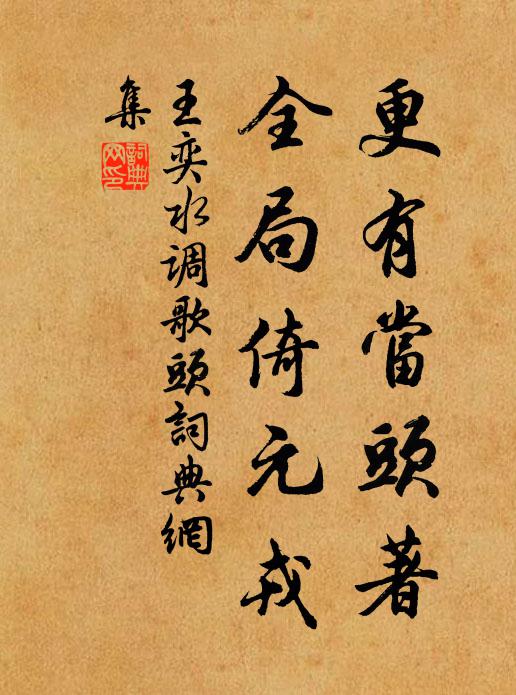 更有當頭著
全局倚元戎
王奕水调歌頭詞典網
集
詞典網印